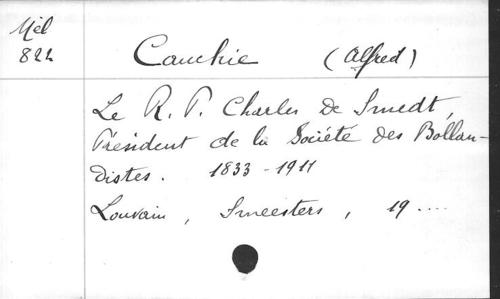 Mél
822
Cauchie (Alfred)
Le R. P. Charles De Smedt,
Président de la Société des Bollan-
distes. 1833-1911
Louvain, Smeesters, 19....